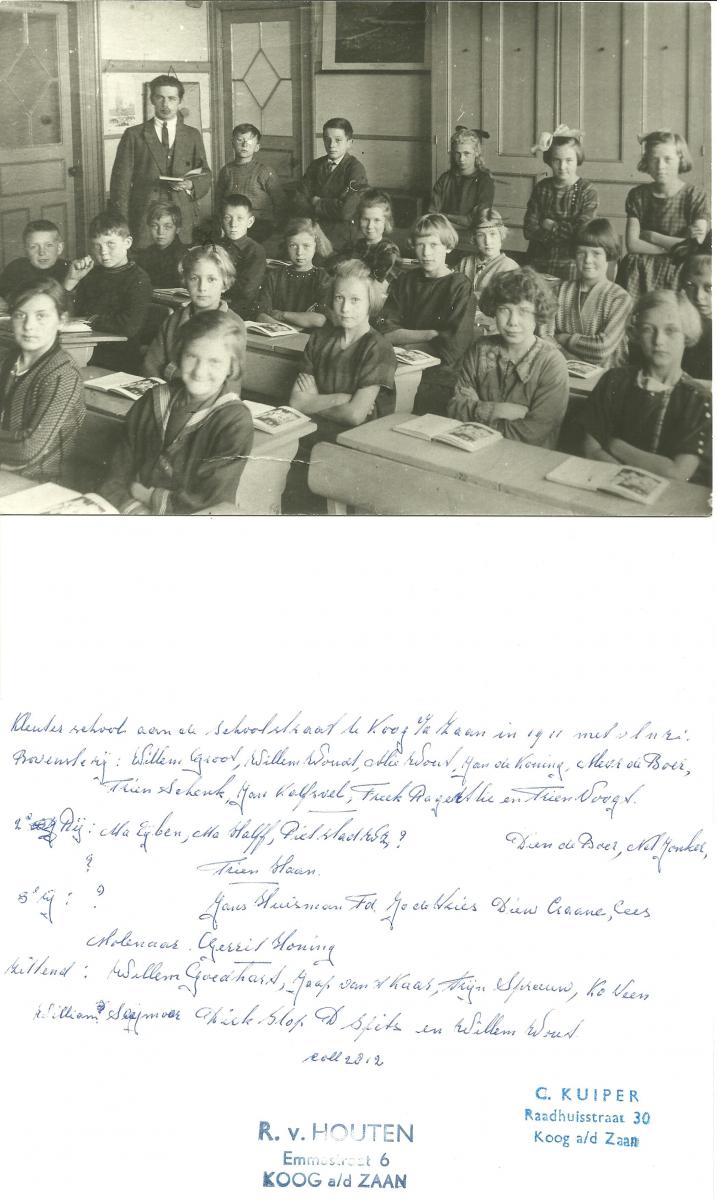 Kleuterschool aan de Schoolstraat te Koog a/d Zaan in 1911 met vlnr:
Bovenste rij: Willem Groot, Willem Woudt, Alie Wout, Jan de Koning, de Boer,
Trien Schenk, Jan Kalfsvel, Freek en Trien Voogt.
2e Rij: Ma Eyben, Ma Halff, Piet ? Dien de Boer, Nel Jonker,
? Trien Haan.
3e rij: ? Hans Huisman Fd, Jo de Vries Dieuw Craane, Cees
Molenaar. Gerrit Honing
Zittend: Willem Goedhart, Jaap van 't Kaar, Trijn Spreeuw, Ko Veen
William? Seymoor Dirk Slop D Spits en Willem Wout.
coll 2812
C. KUIPER
Raadhuisstraat 30
Koog a/d Zaan
R. v. HOUTEN
Emmastraat 6
KOOG a/d ZAAN